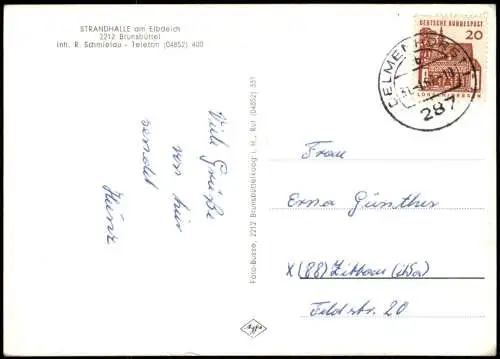 STRANDHALLE am Elbdeich
2212 Brunsbüttel
Inh. R. Schmielau - Telefon (04852) 400
DEUTSCHE BUNDESPOST
20
DELMENHORST 1
287
Foto-Busse, 2212 Brunsbüttelkoog i. H., Ruf (04852) 551
Viele Grüße
von hier
sendet
Heinz
Frau
Erna Günther
X (88) Zittau
Feldstr. 20